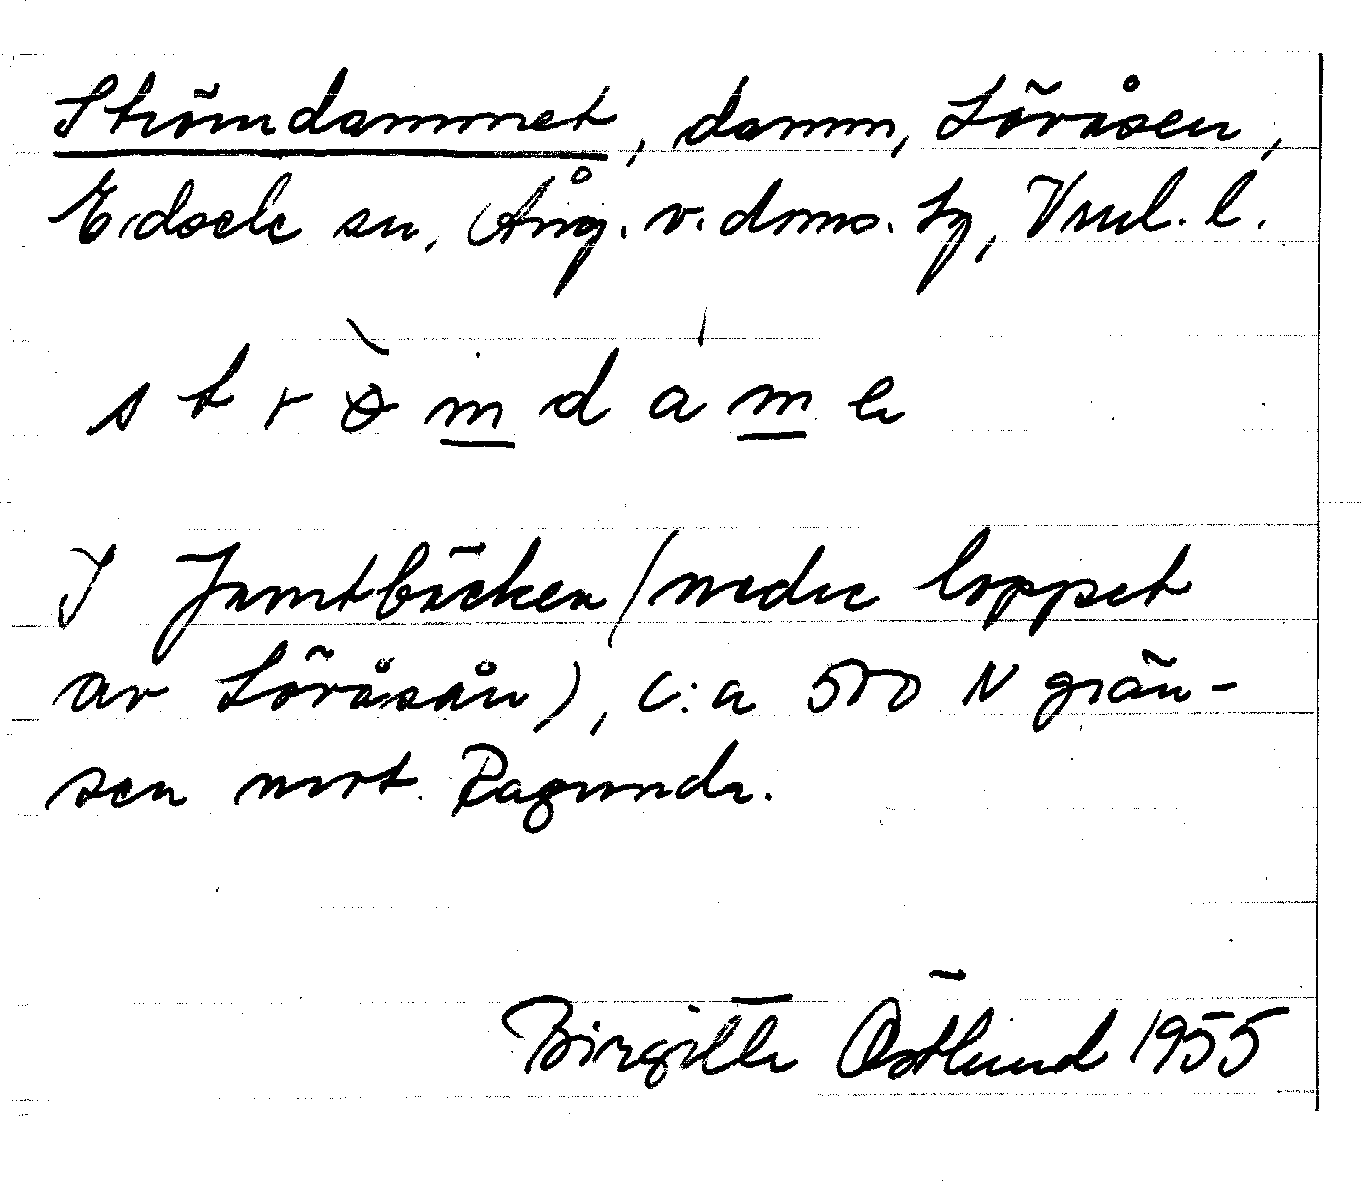 Strömdammet, damm, Löråsen,
Edsele sn, Ång. v. doms. hg, Vnl. l.
s t r ö̀ m d a m e
I Jamtbäcken (nedre loppet
av Löråsån), c:a 500 N grän-
sen mot Ragunda.
Birgitta Östlund 1955